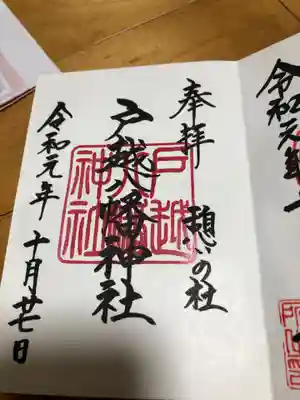 奉拝
憩いの杜
戸越八幡神社
戸越
八幡
神社
令和元年 十月廿七日
令和元年